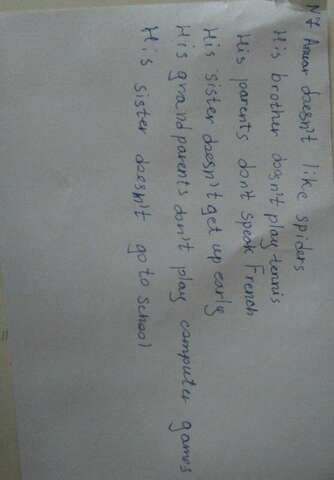 N7 Anwar doesn't like spiders
His brother doesn't play tennis
His parents don't speak French
His sister doesn't get up early
His grandparents don't play computer games
His sister doesn't go to school